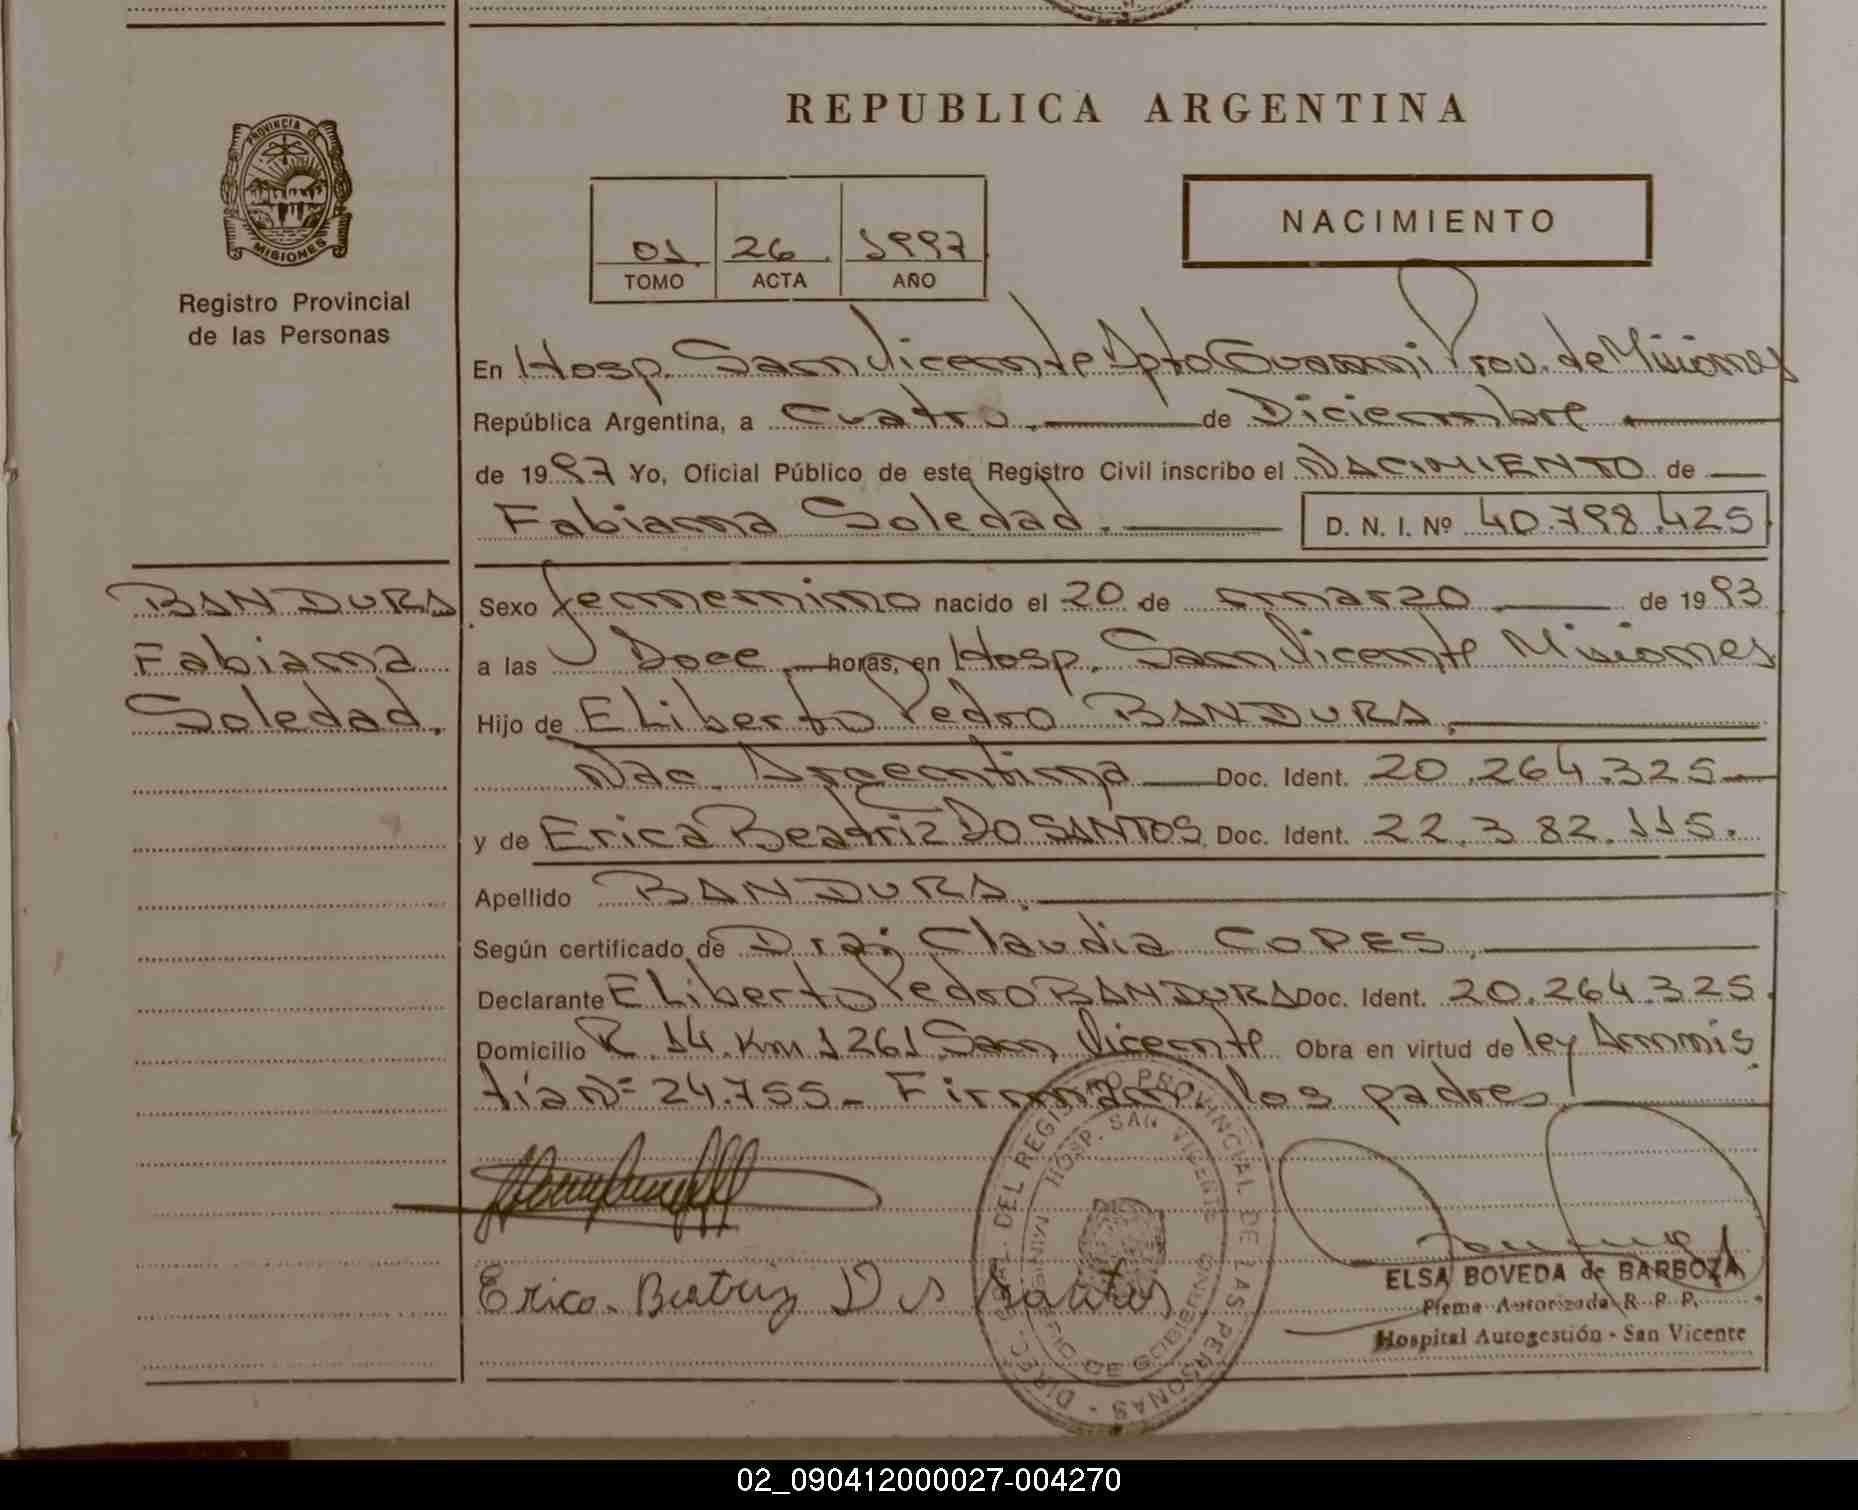 REPUBLICA ARGENTINA
PROVINCIA DE
MISIONES
Registro Provincial
de las Personas
01 26 1997
TOMO ACTA AÑO
NACIMIENTO
En Hosp. San Vicente Dpto Guarani Prov. de Misiones
República Argentina, a cuatro de Diciembre
de 1997 Yo, Oficial Público de este Registro Civil inscribo el NACIMIENTO de
Fabiana Soledad. D. N. I. Nº 40.798.425
BANDURA
Fabiana
Soledad.
Sexo femenino nacido el 20 de marzo de 1993
a las Doce horas, en Hosp. San Vicente Misiones
Hijo de ELiberto Pedro BANDURA
Nac. Argentina Doc. Ident. 20.264.325
y de Erica Beatriz DO SANTOS Doc. Ident. 22.382.115.
Apellido BANDURA
Según certificado de Dra; Claudia COPES
Declarante ELiberto Pedro BANDURA Doc. Ident. 20.264.325.
Domicilio R. 14. Km 1261 San Vicente Obra en virtud de ley Amnis
tía Nº 24.755 - Firman los padres
Erica Beatriz Dos Santos
DIREC. GRAL. DEL REGISTRO PROVINCIAL DE LAS PERSONAS
HOSP. SAN VICENTE
MINISTERIO DE GOBIERNO
ELSA BOVEDA de BARBOZA
Firma Autorizada R. P. P.
Hospital Autogestión - San Vicente
02_090412000027-004270